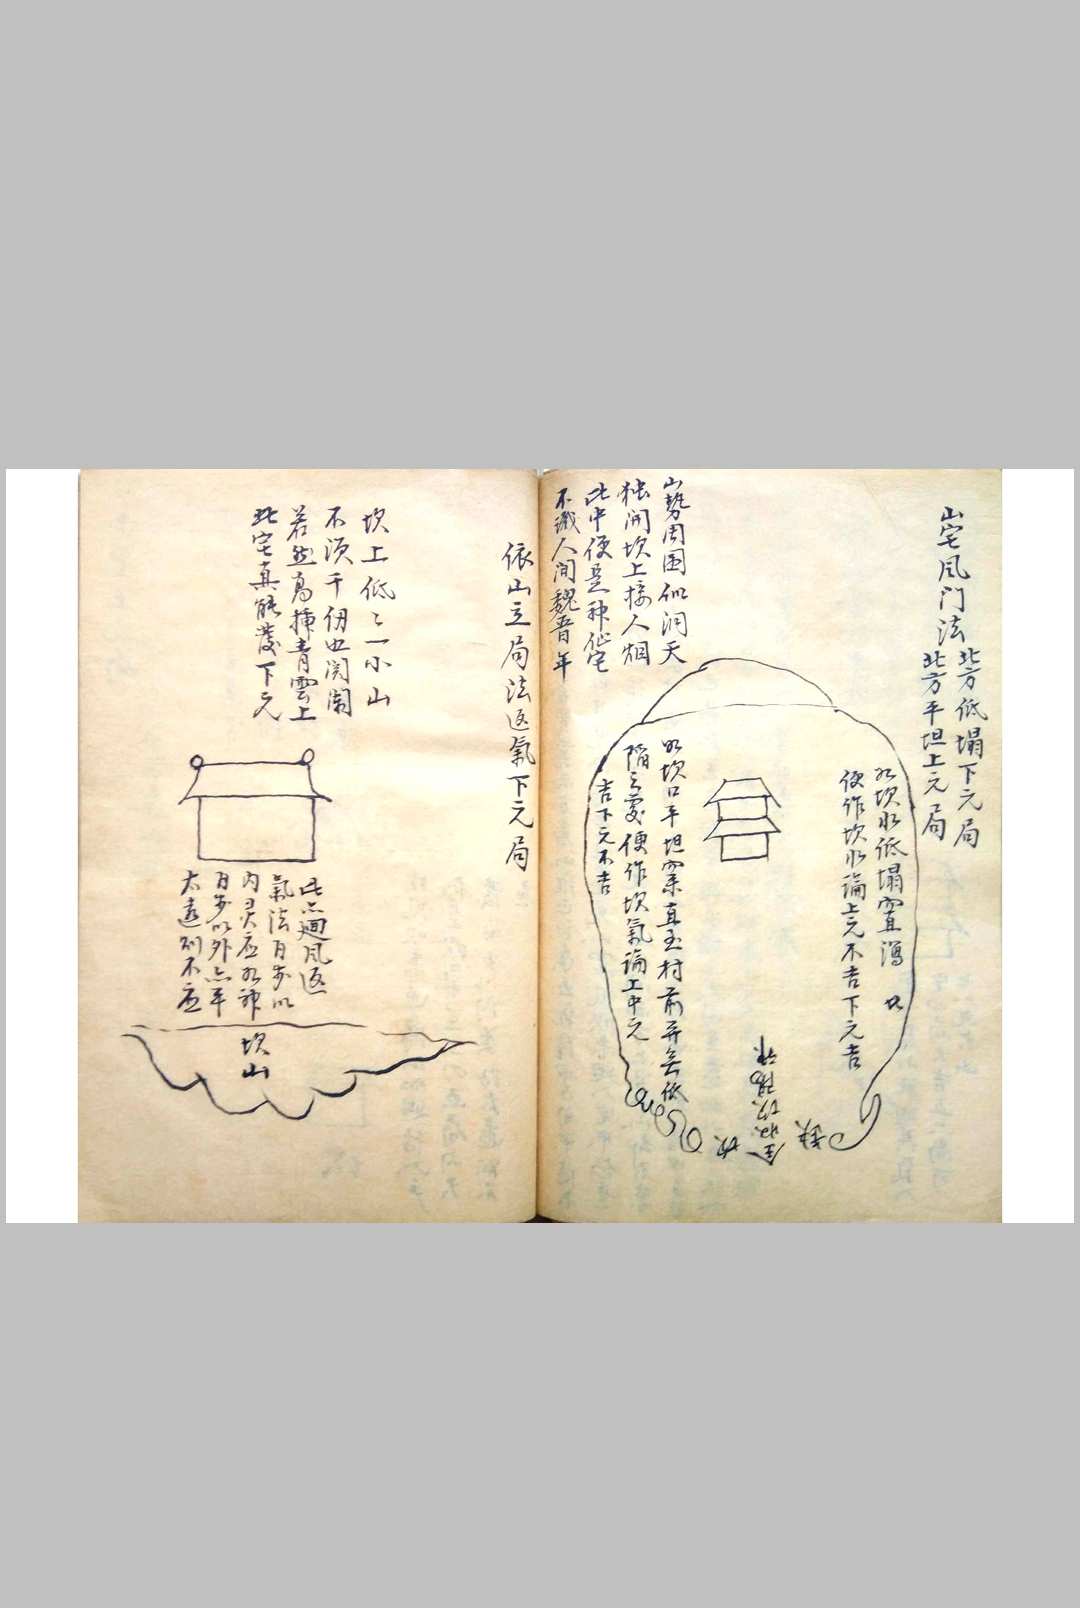 山宅風门法
北方低塌下元局
北方平坦上元局
如坎水低塌穿宜瀉
便作坎水論上元不吉下元吉
山勢周围似洞天
独開坎上接人烟
此中便是神仙宅
不識人间魏晋年
如坎口平坦案直至村前并無低
陷之處便作坎氣論上中元
吉下元不吉
坎
缺
依山立局法返氣下元局
坎上低〻一小山
不須千仞也関闌
若然高揷青雲上
此宅真能發下元
此亦迴风返
氣法百步以
内灵应如神
百步以外亦平
太遠則不应
坎山